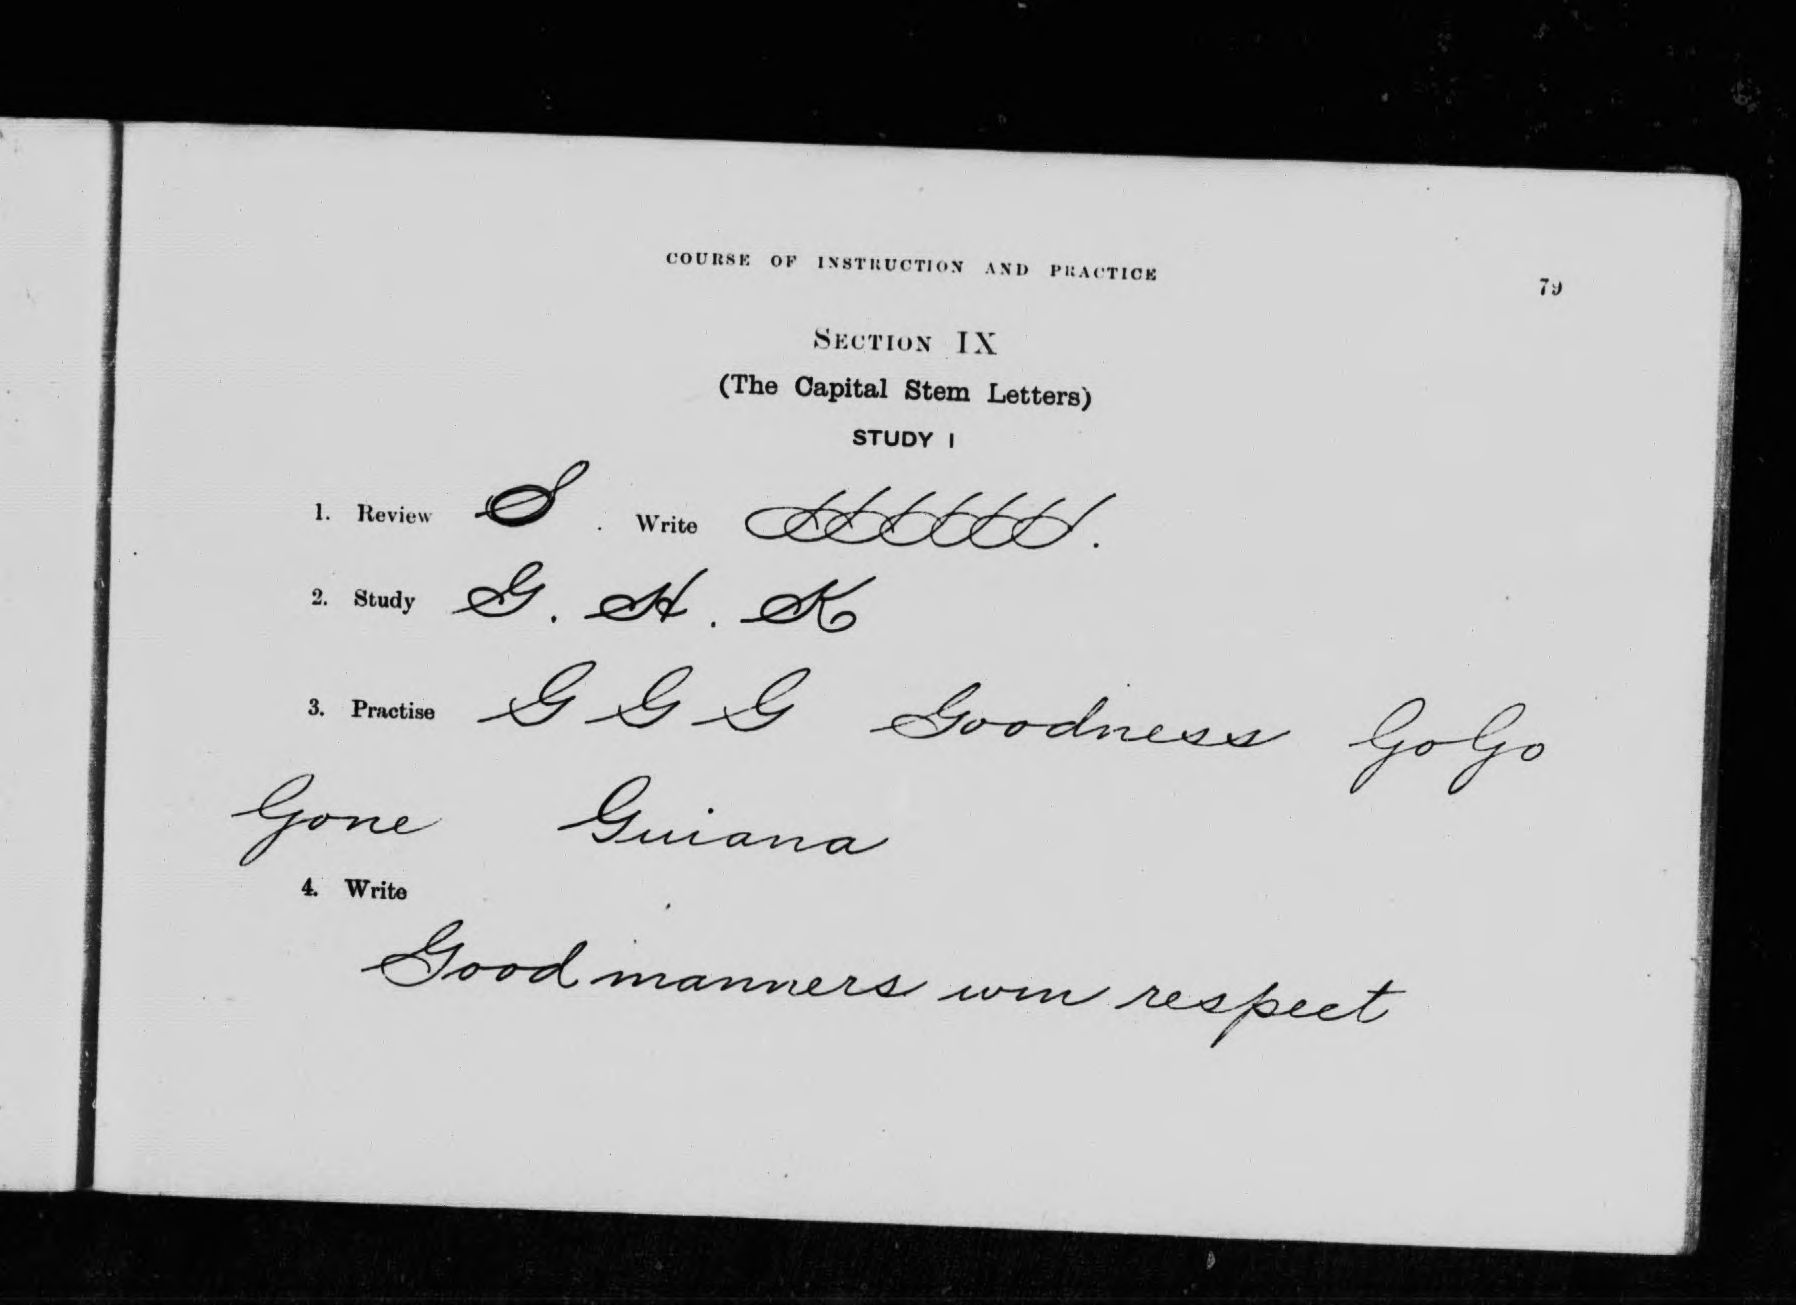 COURSE OF INSTRUCTION AND PRACTICE 79
SECTION IX
(The Capital Stem Letters)
STUDY I
1. Review . Write .
2. Study G. H. K
3. Practise G G G Goodness Go Go
Gone Guiana
4. Write
Good manners win respect